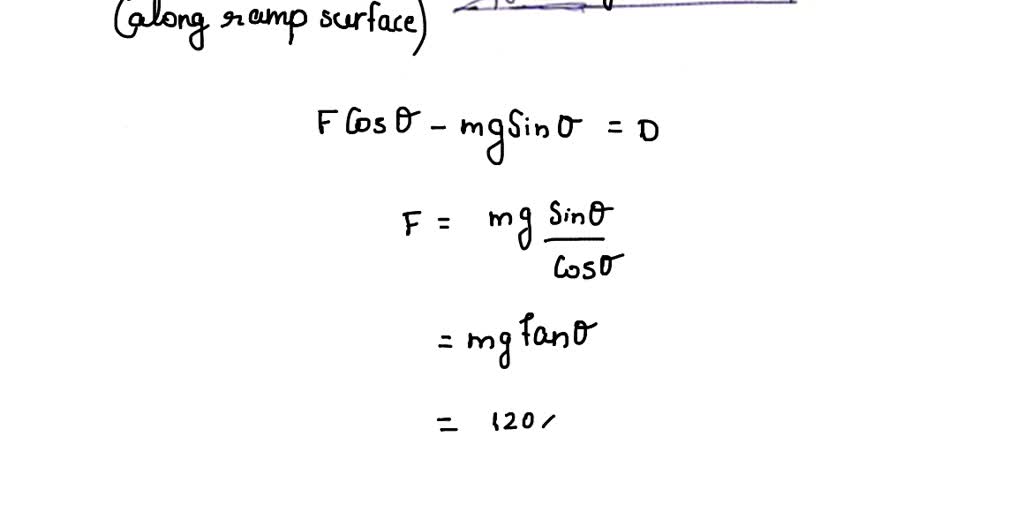 (along ramp surface)
F Cosθ - mg Sinθ = 0
F = mg Sinθ / Cosθ
= mg tanθ
= 120